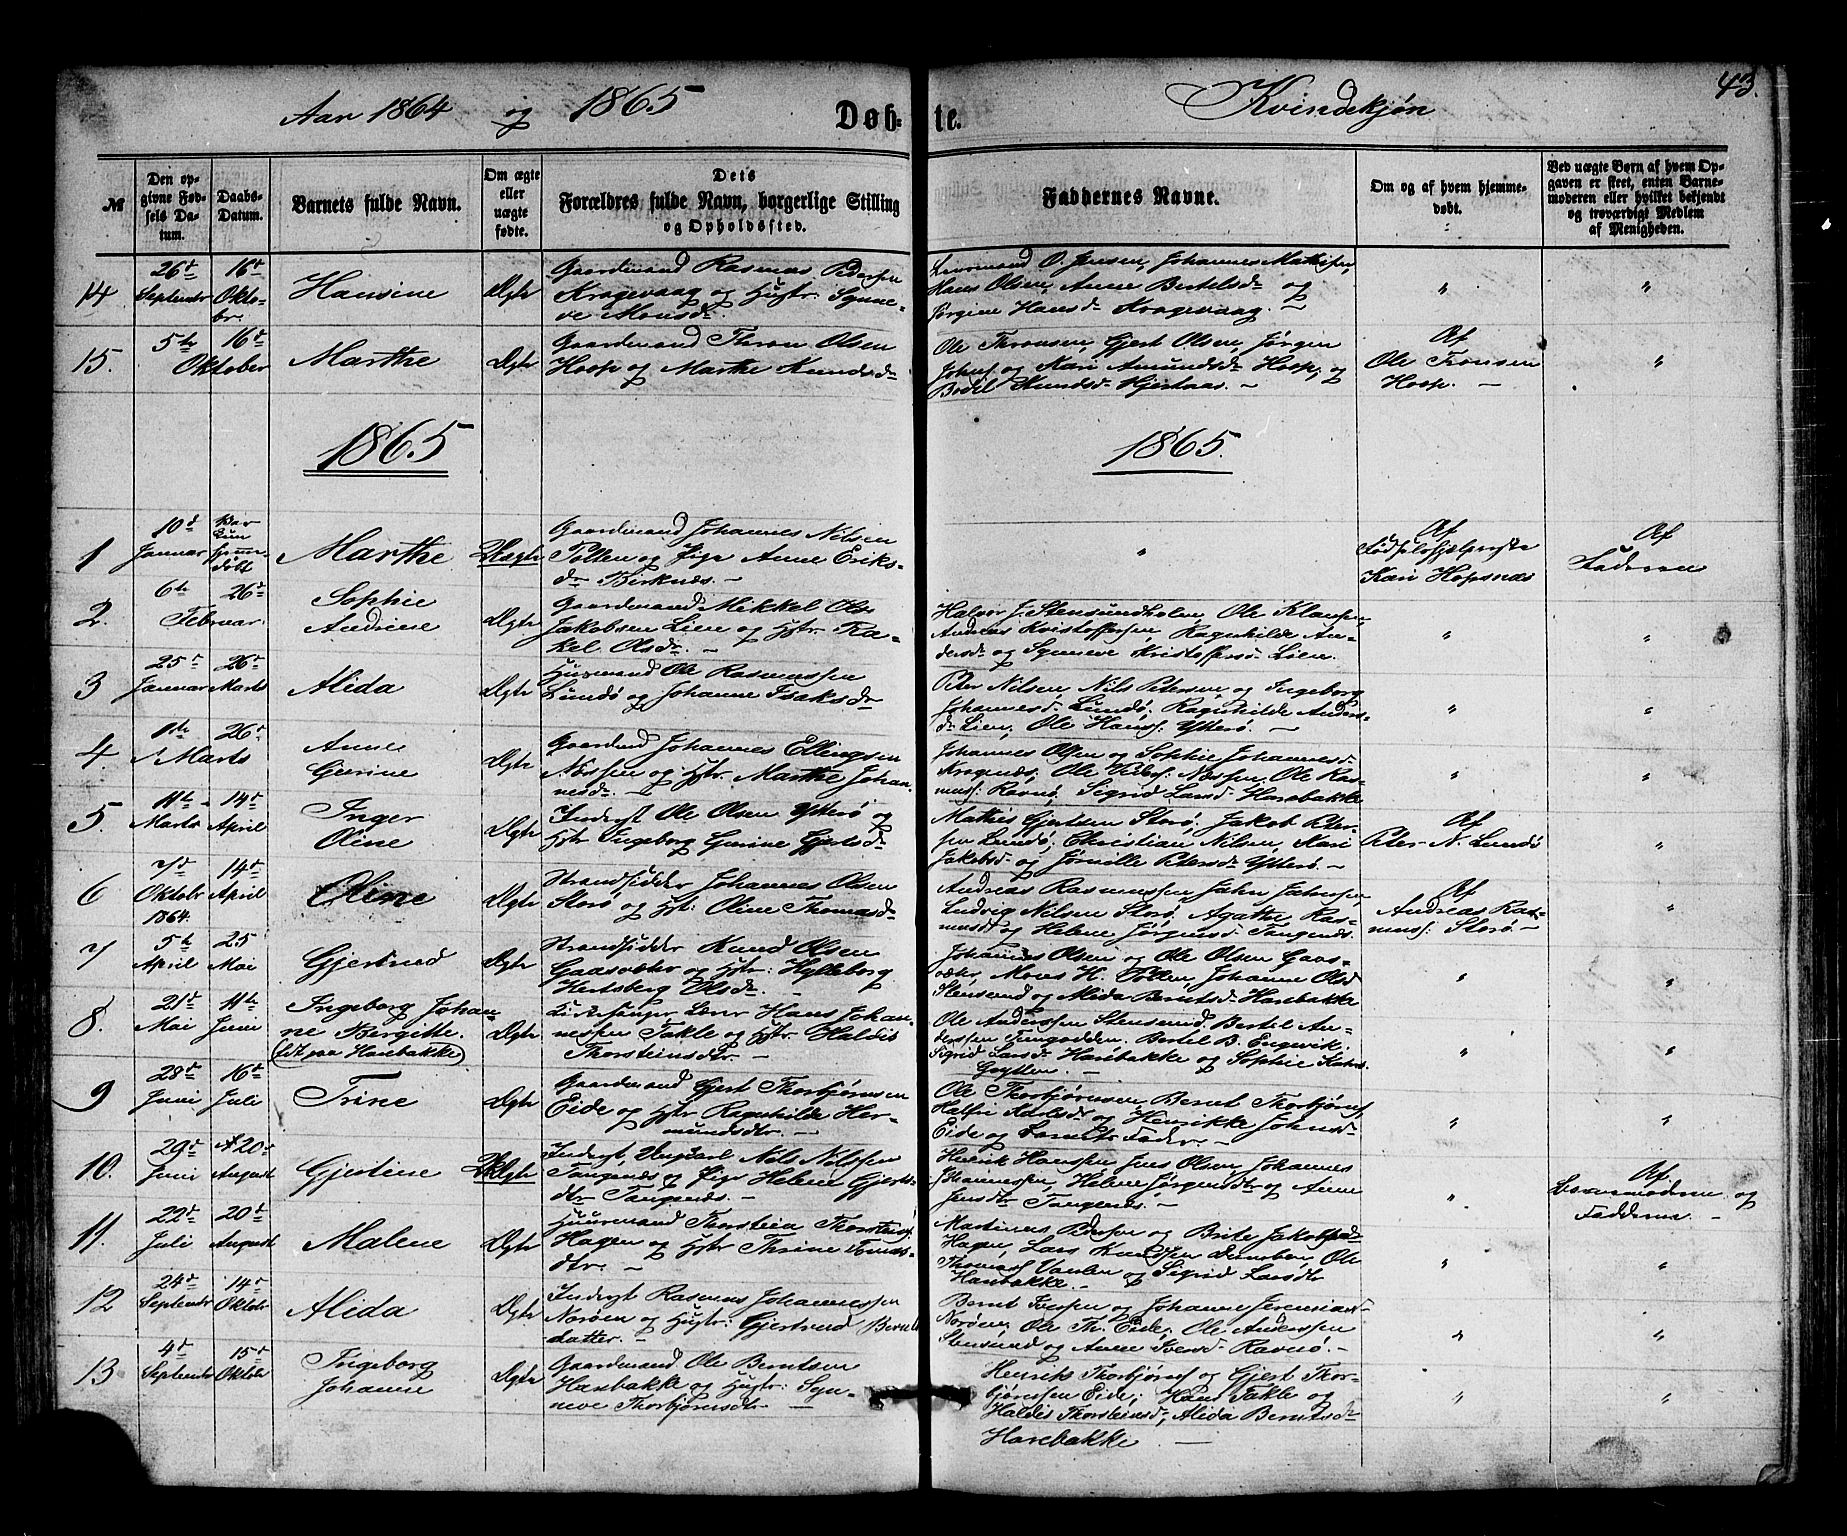 43.
Aar 1864 og 1865 Døb- te. Kvindekjøn
№
Den op-
givne Fød-
sels Da-
tum.
Daabs-
Datum.
Barnets fulde Navn.
Om ægte
eller
uægte
fødte.
Dets
Forældres fulde Navn, borgerlige Stilling
og Opholdssted.
Faddernes Navne.
Om og af hvem hjemme-
døbt.
Ved uægte Børn af hvem Op-
gaven er skeet, enten Barne-
moderen eller hvilket bekjendt
og troværdigt Medlem
af Menigheden.
14
26de
September
16de
Okto-
br.
Hansine
Ægte
Gaardmand Rasmus Pedersen
Kragevaag og Hustr: Synne-
ve Monsdr.
O. Jensen, Johannes Mathisen,
Hans Olsen, Anne Bertelsdr og
Jørgine Hansdr Kragevaag. –
"
"
15.
5te
16de
Oktober
Marthe
Ægte
Gaardmand Thron Olsen
Hoop og Marthe Knudsdr
Ole Thronsen, Gjert Olsen, Jørgen
Johns. og Kari Amundsdr Hoop, og
Bodil Knudsdr Hjertaas. –
Af
Ole Tronsen
Hoop. –
"
1865
1865.
1
10de
Januar
Var
kun
hjemme-
døbt
Marthe
Uægte
Gaardmand Johannes Nilsen
Tollen og Pige Anne Eriks-
dr Birknes. –
"
Af
Kari Hopsnæs
Af
Faderen
2.
6te
26de
Februar.
Sophie
Andrine
Ægte
Gaardmand Mikkel Ols
Jakobsen Lien og Hstr. Ra-
kel Olsdr. –
Halvor J. Stensundholm, Ole Klausen,
Andreas Kristoffersen, Ragnhilde An-
dersdr og Synneve Kristoffersdr Lien.
"
"
3
25de
Januar
26de
Marts
Alida
Ægte
Huusmand Ole Rasmussen
Lundø og Johanne Isaksdr
Peter Nilsen, Nils Petersen og Ingeborg
Johannesdr Lundø. Ragnhilde Anders-
dr Lien, Ole Hans: Ytterø. –
"
"
4
1ste
26de
Marts
Anne
Gurine
Ægte
Gaardmd Johannes Ellingsen
Nessen og Hstr. Marthe Johan-
nesdr. –
Johannes Olsen og Sophie Johannesdr.
Kragenes, Ole Nessen, Ole Ras-
muss: Ravnø, Sigrid Larsdr Harebakke
"
"
5.
11te
Marts
14de
April
Inger
Oline
Ægte
Inderst Ole Olsen Ytterø og
Hstr Ingeborg Gurine Gjertsdr
Mathis Gjertsen Storø, Jakob Peter-
sen Lundø, Christian Nilsen, Kari
Jakobsdr og Petersdr Ytterø. –
Af
Peter N. Lundø
"
6
7de
Oktobr
1864.
14de
April
Oline
Ægte
Strandsidder Johannes Olsen
Storø og Hst: Oline Thomasdr
Andreas Rasmussen, John Johnsen
Ludvig Nilsen Storø, Agathe Ras-
musdr og Helene Jørgensdr Tangenes.
Af
Andreas Ras-
muss: Storø –
"
7
5te
April
25
Mai
Gjertrud
Ægte
Strandsidder Knud Olsen
Gaasvær og Hstr: Hylleborg
Hertsberg Olsdr. –
Johannes Olsen og Ole Olsen Gaas-
vær, Mons H. Johanne Olsdr
Stensund og Alida Berntsdr Harebakke
"
"
8.
21de
Mai
11te
Juni
Ingeborg Johan-
ne Bergitte.
(født paa Harebakke)
Ægte
Kirkesanger Lærer Hans Johan-
nessen Takle og Hstr Haldis
Thorsteinsdtr. –
Ole Anderssen Stensund, Bertel An-
derssen Tungodden. Bertel B. Engevik.
Sigrid Larsdr Harebakke og Sophie
"
"
9
28de
Juni
16de
Juli
Trine
Ægte
Gaardmand Gjert Thorbjørnsen
Eide og Hstr Ragnhilde Her-
mundsdtr. –
Ole Thorbjørnsen, Bernt Thorbjørns,
og Henrikke Johnsdr
Eide og Barnets Fader. –
"
"
10.
29de
Juni
20de
August
Gjertine
Uægte
Inderst, Ungkarl Nils Nilssen
Tangenes og Pige Helene Gjerts-
dtr Tangenes. –
Henrik Hanssen, Jens Olsen, Johannes
Johannessen, Helene Jørgensdtr og Anne
Jensdtr Tangenes. –
"
Af
Barnemoderen og
Fadderne. –
11.
22de
Juli
20de
August
Malene
Ægte
Huusmand Thorstein Thorsteins.
Hagen og Hstr Thrine Tomas-
dtr. –
Martinus Persen og Brite Jakobsdr
Hagen, Lars Knudssen Ole
Thomas: Vaulen og Sigrid Larsdtr
Harebakke. –
"
"
12
24de
September
14de
Oktobr
Alida
Ægte
Inderst Rasmus Johannessen
Norøen og Hustr: Gjertrud Bernts-
datter. –
Bernt Iversen og Johanne Jeremiasdr
Norøen, Ole Th. Eide, Ole Anderssen
Stensund og Anne Iversdr Ravnø. –
"
"
13
4de
September
15de
Oktobr
Ingeborg
Johanne
Ægte
Gaardmand Ole Berntsen
Harebakke og Hustr: Syn-
neve Thorbjørnsdtr. –
Henrik Thorbjørns og Gjert Thor-
bjørnsen Eide, Hans Takle og
Haldis Thorsteinsdr, Alida Berntsdr
Harebakke –
"
"